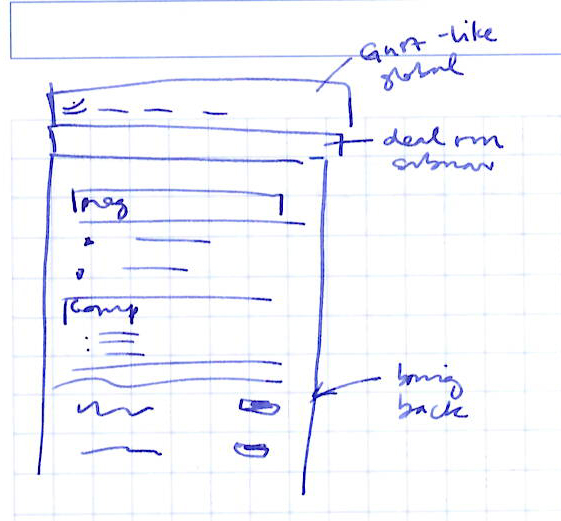 Gust-like
global
deal room
subnav
comp
bring
back